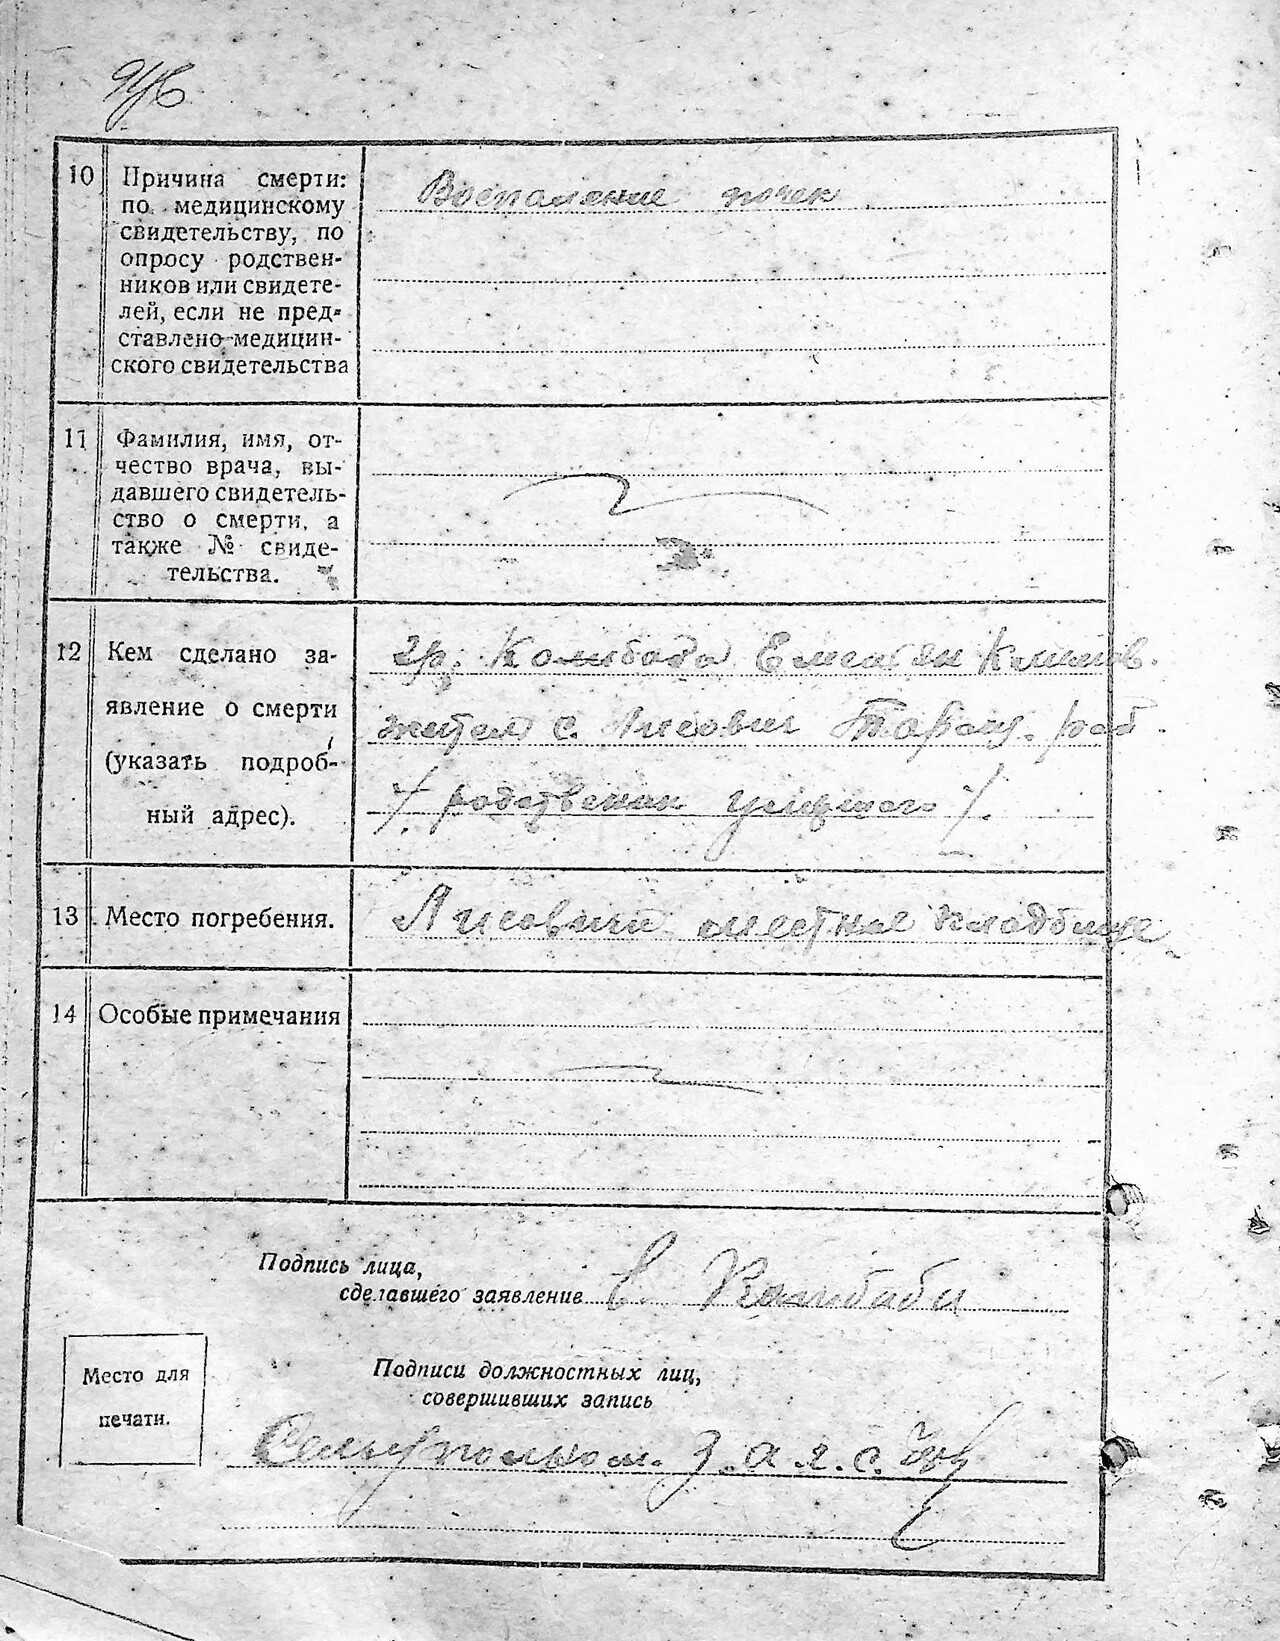 10 Причина смерти:
по медицинскому
свидетельству, по
опросу родствен-
ников или свидете-
лей, если не пред-
ставлено медицин-
ского свидетельства
Воспаление почек
11 Фамилия, имя, от-
чество врача, вы-
давшего свидетель-
ство о смерти, а
также № свиде-
тельства.
12 Кем сделано за-
явление о смерти
(указать подроб-
ный адрес).
гр. Емельян Климов.
жител с. Лисович Таращ. рай.
/ родственик умершего /.
13. Место погребения.
Лисовичи местное кладбище
14 Особые примечания
Подпись лица,
сделавшего заявление
Место для
печати.
Подписи должностных лиц,
совершивших запись